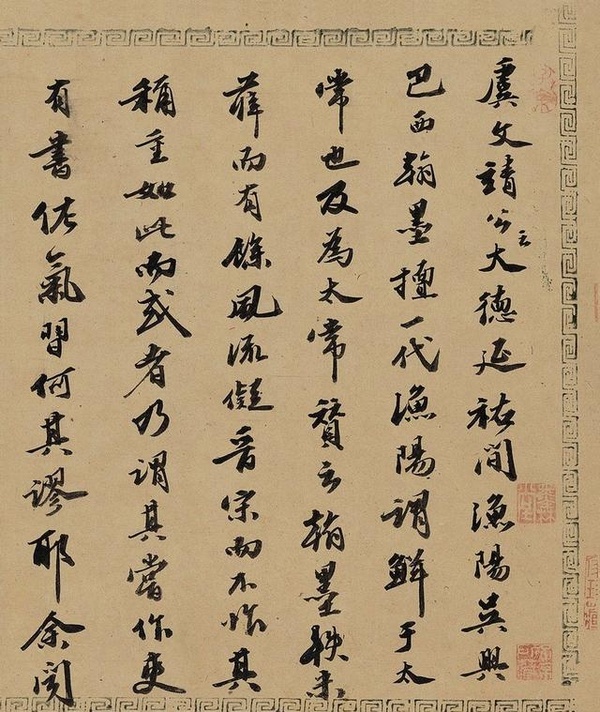 虞文靖公云大德延祐間漁陽吳興
巴西翰墨擅一代漁陽謂鮮于太
常也及為太常贊云翰墨軼米
薛而有餘風流儗晉宋而不怍其
稱重如此而或者乃謂其嘗作吏
有書佐氣習何其謬耶余閱